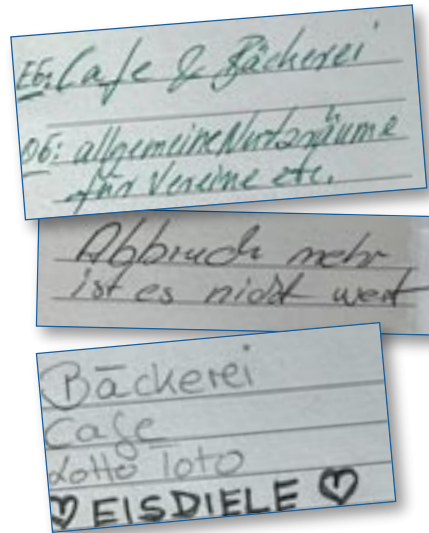 EG: Cafe & Bäckerei
OG: allgemeine Nutzräume
für Vereine etc.
Abbruch mehr
ist es nicht wert
Bäckerei
Cafe
Lotto Toto
♡ EISDIELE ♡